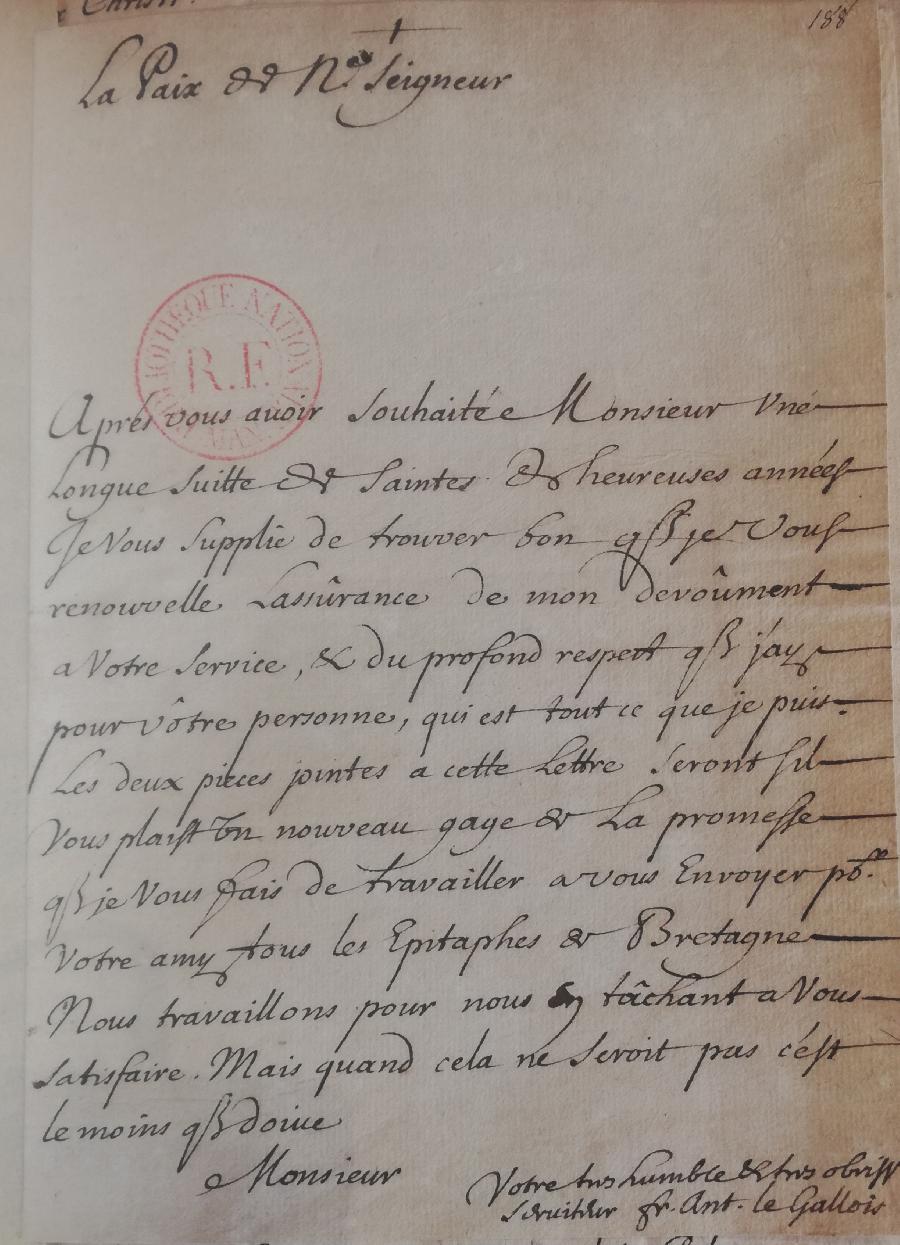 Christ.
188
La Paix de Nre Seigneur
BIBLIOTHEQUE NATIONALE
R.F.
Aprés vous avoir souhaitée Monsieur Vne
Longue suitte de saintes & heureuses années
Je Vous supplie de trouver bon que je Vous
renouvelle Lassûrance de mon devoûment
a Votre service, & du profond respect que j'ay
pour vôtre personne, qui est tout ce que je puis.
Les deux pieces jointes a cette Lettre seront sil
Vous plaist Vn nouveau gage de La promesse
que je Vous fais de travailler a vous Envoyer pr.
Votre amy tous les Epitaphes de Bretagne
Nous travaillons pour nous En tâchant a Vous
satisfaire. Mais quand cela ne seroit pas c'est
le moins que doiue
Monsieur
Votre tres humble & tres obeiss
seruiteur fr. Ant. le Gallois